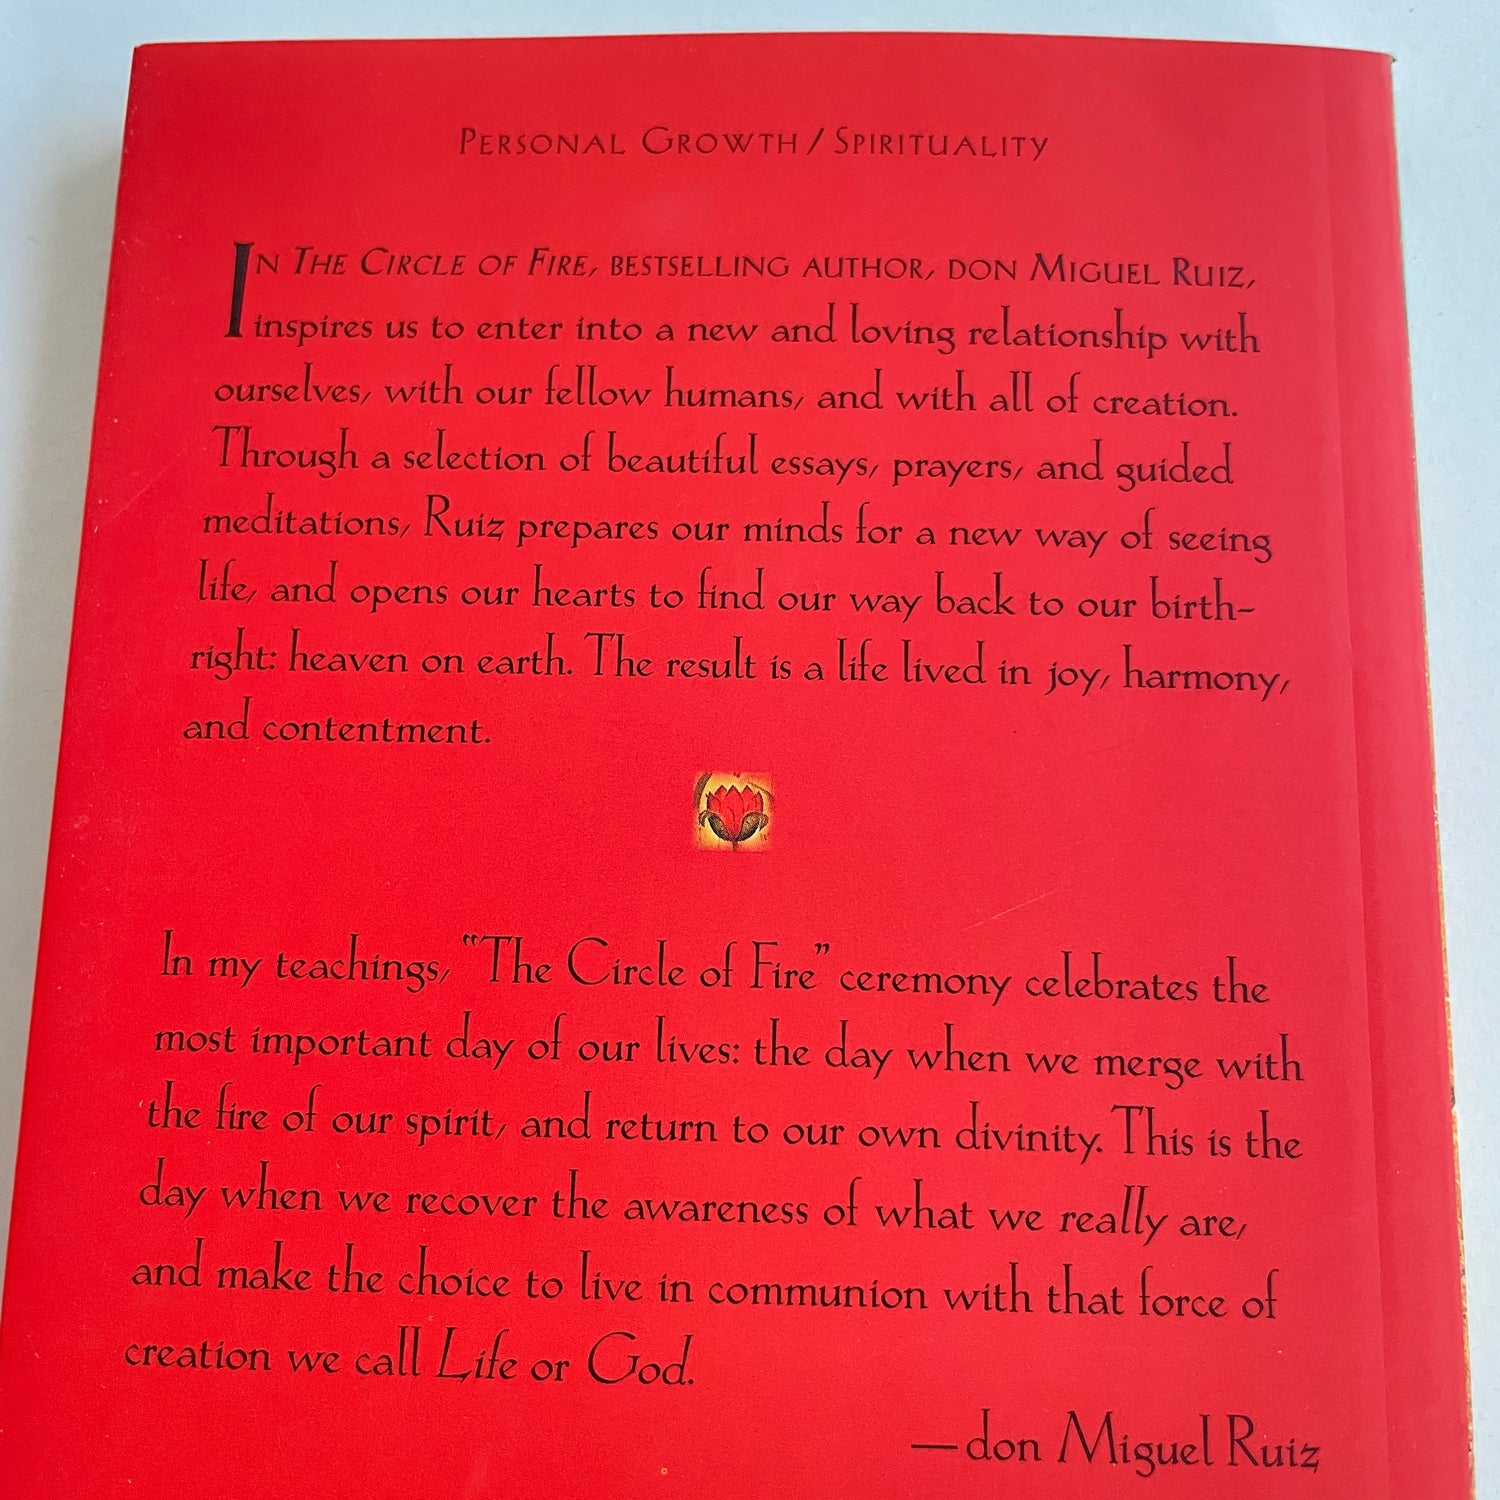 PERSONAL GROWTH / SPIRITUALITY
IN THE CIRCLE OF FIRE, BESTSELLING AUTHOR, DON MIGUEL RUIZ,
inspires us to enter into a new and loving relationship with
ourselves, with our fellow humans, and with all of creation.
Through a selection of beautiful essays, prayers, and guided
meditations, Ruiz prepares our minds for a new way of seeing
life, and opens our hearts to find our way back to our birth-
right: heaven on earth. The result is a life lived in joy, harmony,
and contentment.
In my teachings, "The Circle of Fire" ceremony celebrates the
most important day of our lives: the day when we merge with
the fire of our spirit, and return to our own divinity. This is the
day when we recover the awareness of what we really are,
and make the choice to live in communion with that force of
creation we call Life or God.
—don Miguel Ruiz